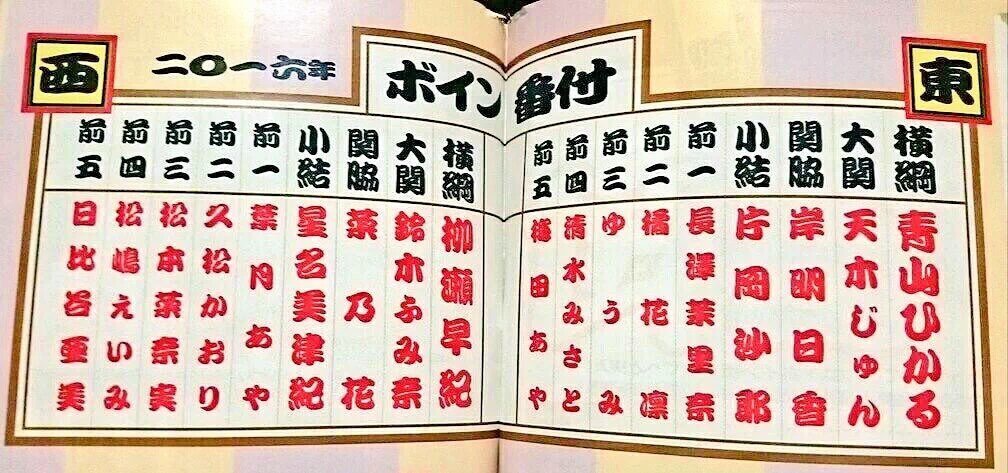 二〇一六年 ボイン番付
東
横綱 青山ひかる
大関 天木じゅん
関脇 岸明日香
小結 片岡沙耶
前一 長澤茉里奈
前二 橘花凛
前三 ゆうみ
前四 清水みさと
前五 塚田あや
西
横綱 柳瀬早紀
大関 鈴木ふみ奈
関脇 菜乃花
小結 星名美津紀
前一 葉月あや
前二 久松かおり
前三 松本菜奈実
前四 松嶋えいみ
前五 日比谷亜美